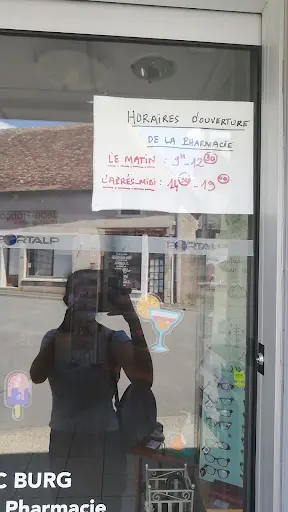 HORAIRES D'OUVERTURE
DE LA PHARMACIE
LE MATIN : 9H - 12 30
L'APRÉS-MIDI : 14 - 19 00
PORTALP PORTALP
C BURG
Pharmacie